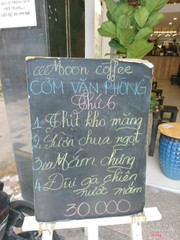 Moon coffee
CƠM VĂN PHÒNG
Thứ 6
1. Thịt kho măng
2. Sườn chua ngọt
3. Mắm chưng
4. Đùi gà chiên
nước mắm
30.000